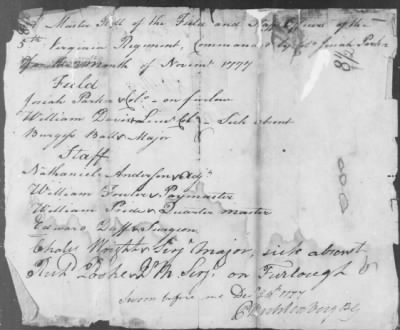 Muster Roll of the Field and Staff Officers of the
5th Virginia Regiment, Commanded by Col Josiah Parker
for the month of Novemr 1777
Field
Josiah Parker Colo - on furlow
William Davis Lieut Colo - Sick absent
Burges Ball Major
Staff
Nathaniel Anderson Adjt
William Fowler Paymaster
William Pride Quarter master
Edward Duff Surgeon
Chols Worthy Serjt Major, sick absent
Richd Booker Q M Serjt on Furlough
Sworn before me Decr 1777
Muhlenberg B G